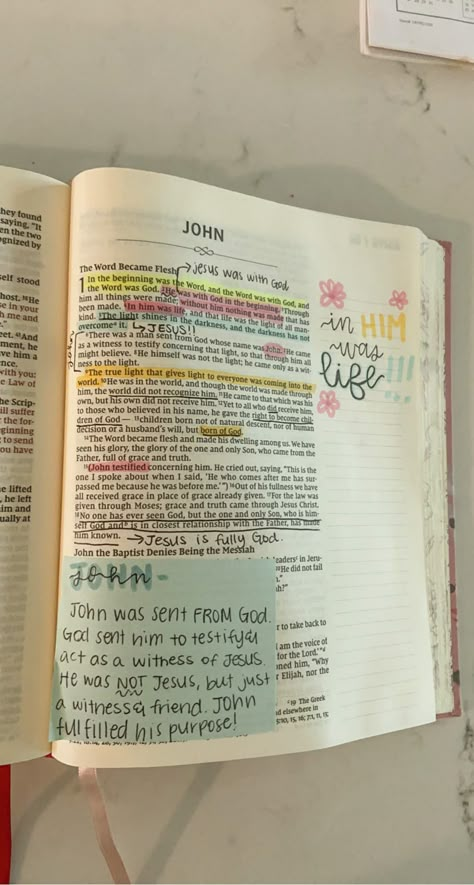 hey found
saying, "It
en the two
ognized by
self stood
host. ³⁸He
se in your
h me and
eet. ⁴¹And
ment, he
ve him a
ence.
with you:
e Law of
he Scrip-
ll suffer
the for-
ginning
to send
ou have
e lifted
he left
im and
ually at
JOHN
The Word Became Flesh → Jesus was with God
1 In the beginning was the Word, and the Word was with God, and
the Word was God. ²He was with God in the beginning. ³Through
him all things were made; without him nothing was made that has
been made. ⁴In him was life, and that life was the light of all man-
kind. ⁵The light shines in the darkness, and the darkness has not
overcome it. ↳ JESUS!!
⁶There was a man sent from God whose name was John. ⁷He came
as a witness to testify concerning that light, so that through him all
might believe. ⁸He himself was not the light; he came only as a wit-
ness to the light.
⁹The true light that gives light to everyone was coming into the
world. ¹⁰He was in the world, and though the world was made through
him, the world did not recognize him. ¹¹He came to that which was his
own, but his own did not receive him. ¹²Yet to all who did receive him,
to those who believed in his name, he gave the right to become chil-
dren of God— ¹³children born not of natural descent, nor of human
decision or a husband's will, but born of God.
¹⁴The Word became flesh and made his dwelling among us. We have
seen his glory, the glory of the one and only Son, who came from the
Father, full of grace and truth.
¹⁵(John testified concerning him. He cried out, saying, "This is the
one I spoke about when I said, 'He who comes after me has sur-
passed me because he was before me.'") ¹⁶Out of his fullness we have
all received grace in place of grace already given. ¹⁷For the law was
given through Moses; grace and truth came through Jesus Christ.
¹⁸No one has ever seen God, but the one and only Son, who is him-
self God and is in closest relationship with the Father, has made
him known. → Jesus is fully God.
John the Baptist Denies Being the Messiah
in HIM
was
life!!!
leaders in Jeru-
He did not fail
h."
ah?"
r to take back to
I am the voice of
for the Lord.'"
oned him, "Why
r Elijah, nor the
19 The Greek
d elsewhere in
JOHN-
john
John was sent FROM God.
God sent him to testify &
act as a witness of Jesus.
He was NOT Jesus, but just
a witness & friend. John
fulfilled his purpose!